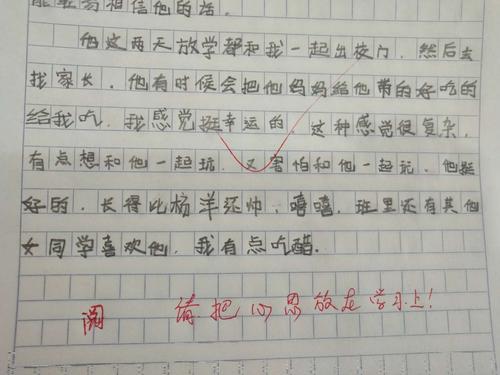 能轻易相信他的话.
他这两天放学都和我一起出校门,然后去
找家长.他有时候会把他妈妈给他带的好吃的
给我吃.我感觉挺幸运的.这种感觉很复杂,
有点想和他一起玩.又害怕和他一起玩.他挺
好的.长得比杨洋还帅.嘻嘻.班里还有其他
女同学喜欢他.我有点吃醋.
阅 请把心思放在学习上!